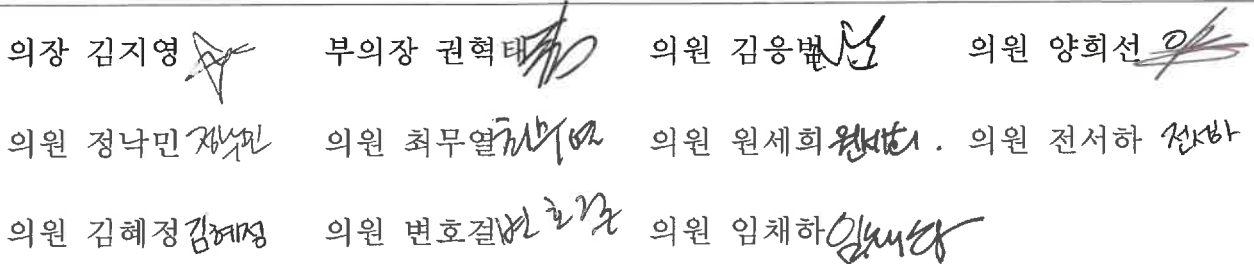 의장 김지영 부의장 권혁태 의원 김응범 의원 양희선
의원 정낙민 정낙민 의원 최무열 최무열 의원 원세희 원세희. 의원 전서하 전서하
의원 김혜정 김혜정 의원 변호걸 변호걸 의원 임채하 임채하